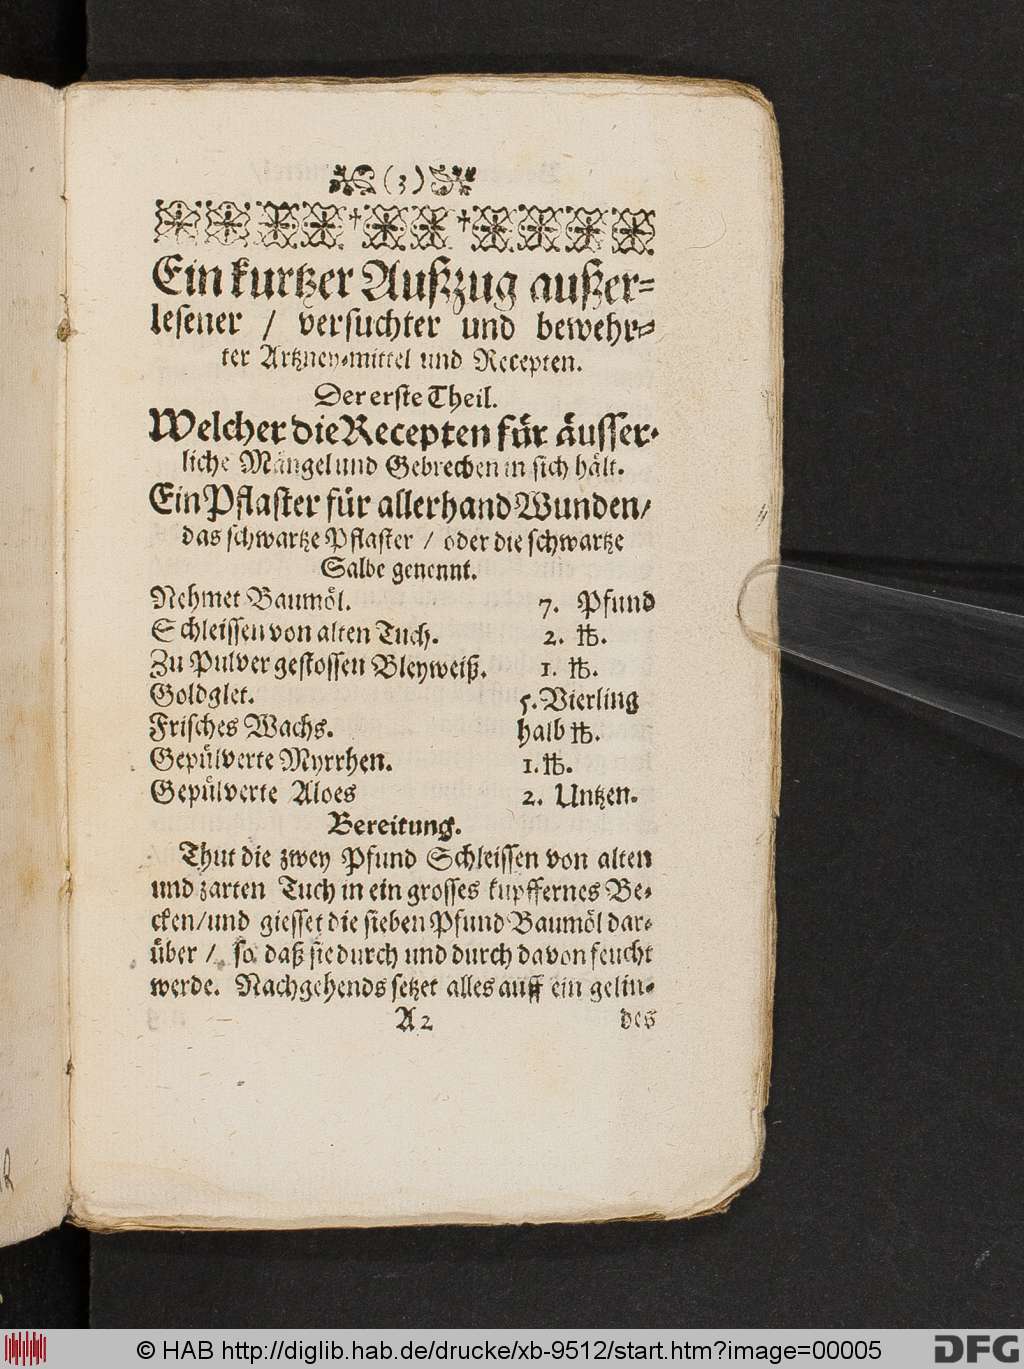 (3)
Ein kurtzer Außzug außer=
lesener / versuchter und bewehr=
ter Artzney=mittel und Recepten.
Der erste Theil.
Welcher die Recepten für äusser=
liche Mängel und Gebrechen in sich hält.
Ein Pflaster für allerhand Wunden/
das schwartze Pflaster / oder die schwartze
Salbe genennt.
Nehmet Baumöl. 7. Pfund
Schleissen von alten Tuch. 2. ℔.
Zu Pulver gestossen Bleyweiß. 1. ℔.
Goldglet. 5. Vierling
Frisches Wachs. halb ℔.
Gepülverte Myrrhen. 1. ℔.
Gepülverte Aloes 2. Untzen.
Bereitung.
Thut die zwey Pfund Schleissen von alten
und zarten Tuch in ein grosses kupffernes Be=
cken/und giesset die sieben Pfund Baumöl dar=
über / so daß sie durch und durch davon feucht
werde. Nachgehends setzet alles auff ein gelin=
A 2 des
© HAB http://diglib.hab.de/drucke/xb-9512/start.htm?image=00005
DFG